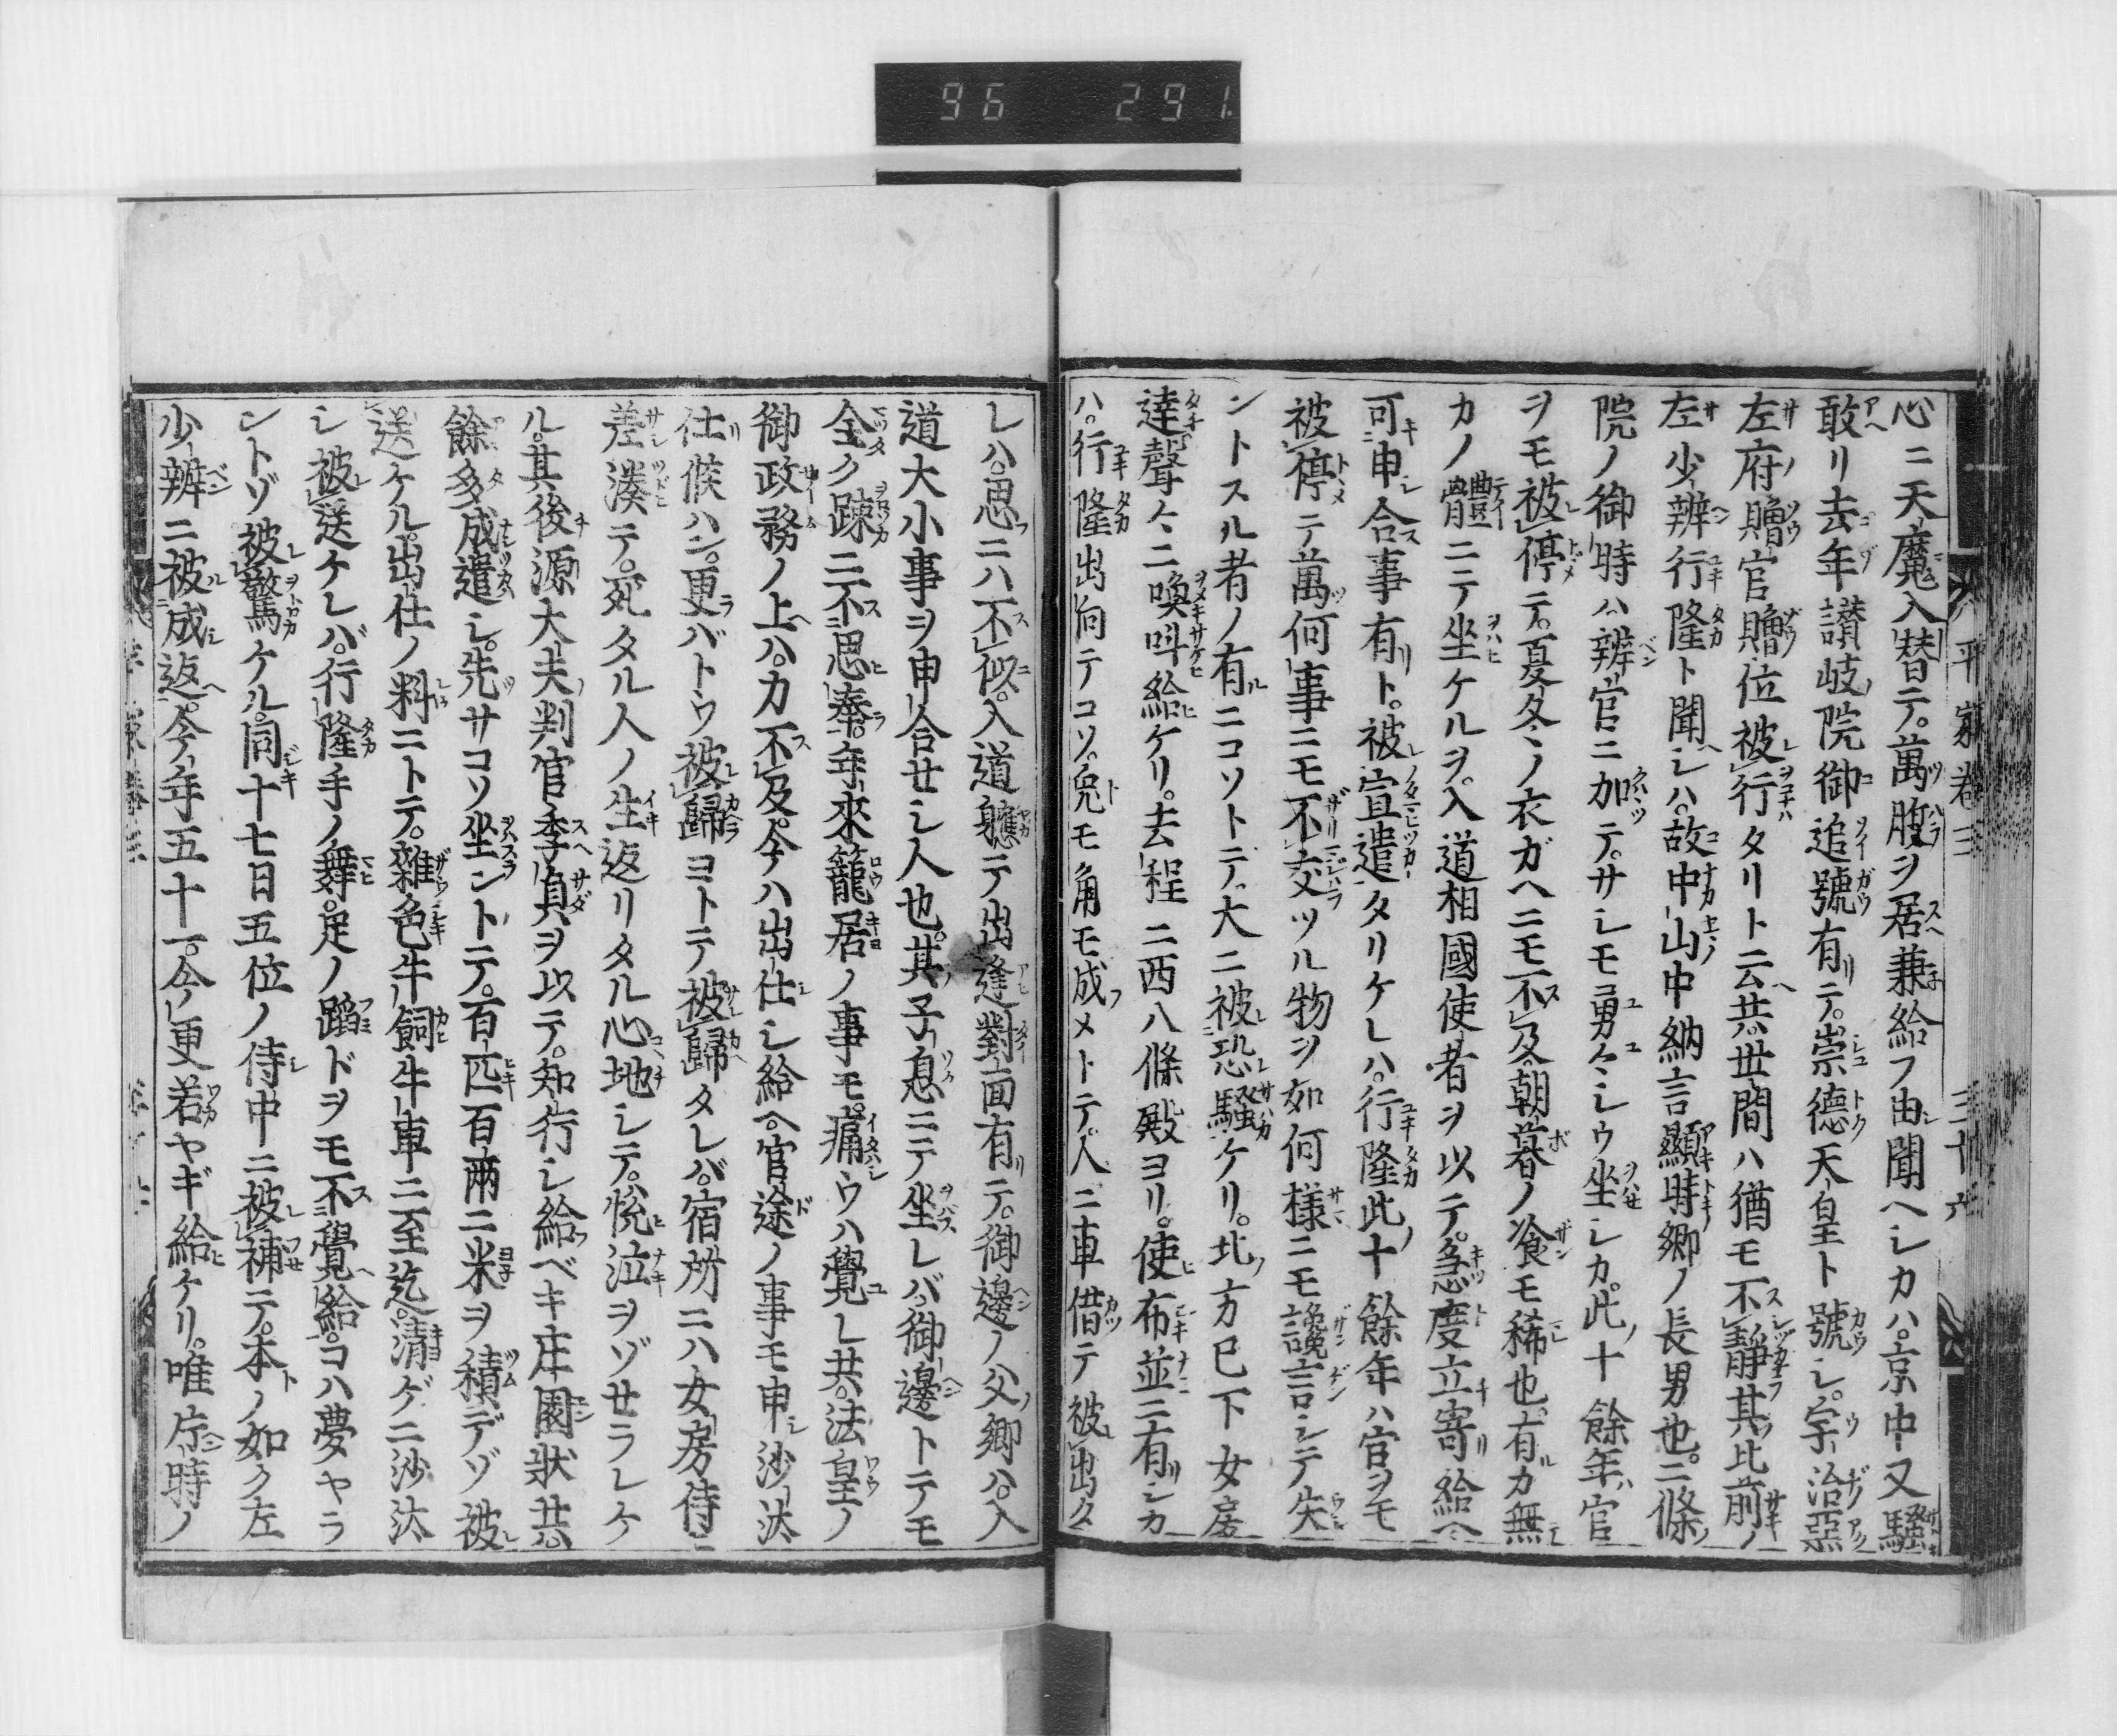 96 291
平家巻三 三十六
心ニ天魔入替テ。萬腹ヲ居兼給フ由聞ヘシカハ。京中又騒
敢リ去年讃岐院御追號有テ。崇德天皇ト號シ。宇治惡
左府贈官贈位被行タリト云共。世間ハ猶モ不靜其比前ノ
左少辨行隆ト聞シハ。故中山中納言顯時卿ノ長男也。二條
院ノ御時ハ辨官ニ加テ。サシモ勇々シウ坐シカ。此十餘年官
ヲモ被停テ。夏冬ノ衣ガヘニモ不及。朝暮ノ飡モ稀也。有カ無
カノ體ニテ坐ケルヲ。入道相國使者ヲ以テ。急度立寄給ヘ
可申合事有ト。被宣遣タリケレハ。行隆此十餘年ハ官ヲモ
被停テ萬何事ニモ不交ツル物ヲ如何樣ニモ讒言シテ失
ントスル者ノ有ニコソトテ。大ニ被恐騒ケリ。北方已下女房
達聲々ニ喚叫給ケリ。去程ニ西八條殿ヨリ。使布並ニ有シカ
ハ。行隆出向テコソ。兔モ角モ成メトテ。人ニ車借テ被出タ
レハ。思ニハ不似。入道軈テ出逢對面有テ。御邊ノ父卿ハ。入
道大小事ヲ申合セシ人也。其子息ニテ坐レバ。御邊トテモ
全ク踈ニ不思奉。年來籠居ノ事モ。痛ウハ覺シ共。法皇ノ
御政務ノ上ハ。力不及。今ハ出仕シ給ヘ。官途ノ事モ申沙汰
仕候ハン。更バトウ被歸ヨトテ被歸タレバ。宿所ニハ女房侍
差湊テ。死タル人ノ生返リタル心地シテ。悅泣ヲゾセラレケ
ル。其後源大夫判官季貞ヲ以テ。知行シ給ベキ庄園狀共
餘多成遣シ。先サコソ坐ントテ。百匹百兩ニ米ヲ積デゾ被
送ケル。出仕ノ料ニトテ。雜色牛飼牛車ニ至迄。清ゲニ沙汰
シ被送ケレバ。行隆手ノ舞。足ノ蹈ドヲモ不覺給。コハ夢ヤラ
ントゾ被驚ケル。同十七日五位ノ侍中ニ被補テ。本ノ如ク左
少辨ニ被成返。今年五十一。今更若ヤギ給ケリ。唯片時ノ